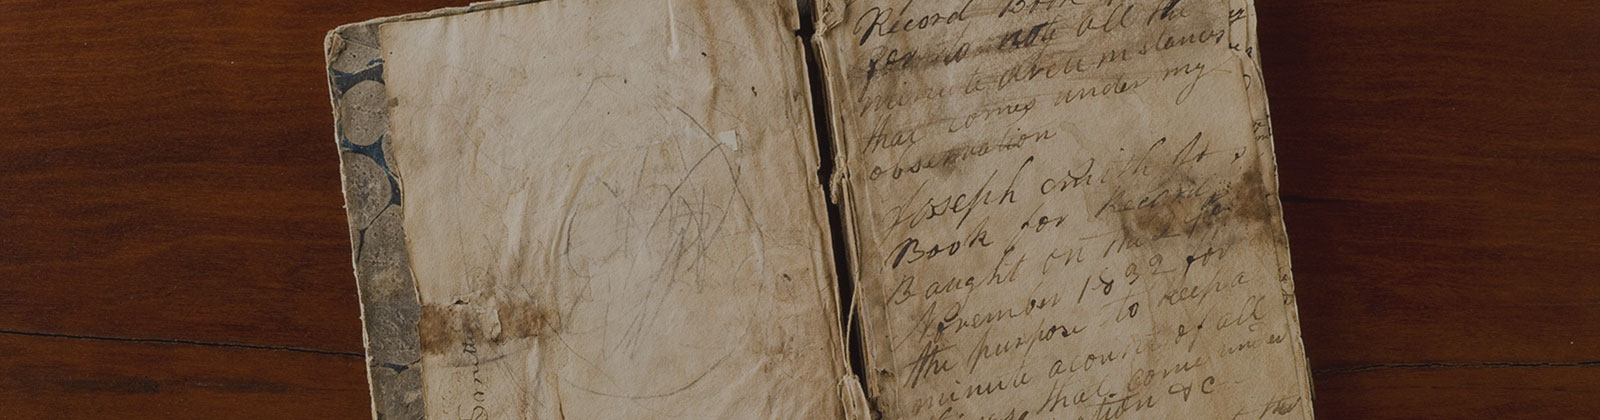 Record Book
for to note all the
minute circumstances
that comes under my
observation
Joseph Smith Jr
Book for Record
Baught on the
November 1832 for
the purpose to keep a
minute acount of all
things that come under
&c